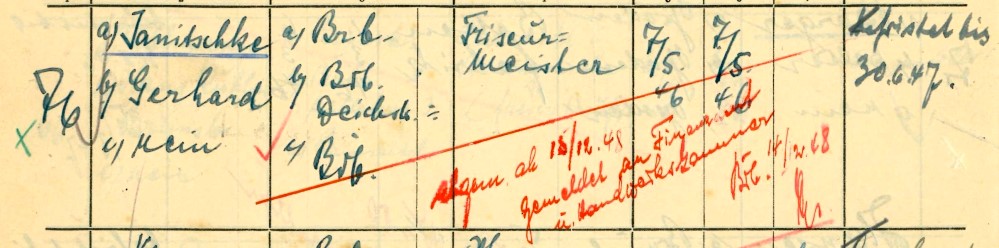 76
a) Janitschke
b) Gerhard
c) Mein
a) Brb.
b) Brb.
Deichstr. =
c) Brb.
Friseur=
meister
7/5
46
7/5
46
Befristet bis
30.6.47.
abgem. ab 15/12.48
gemeldet an Finanzamt
u. Handwerkskammer
Brb. 14/12.48